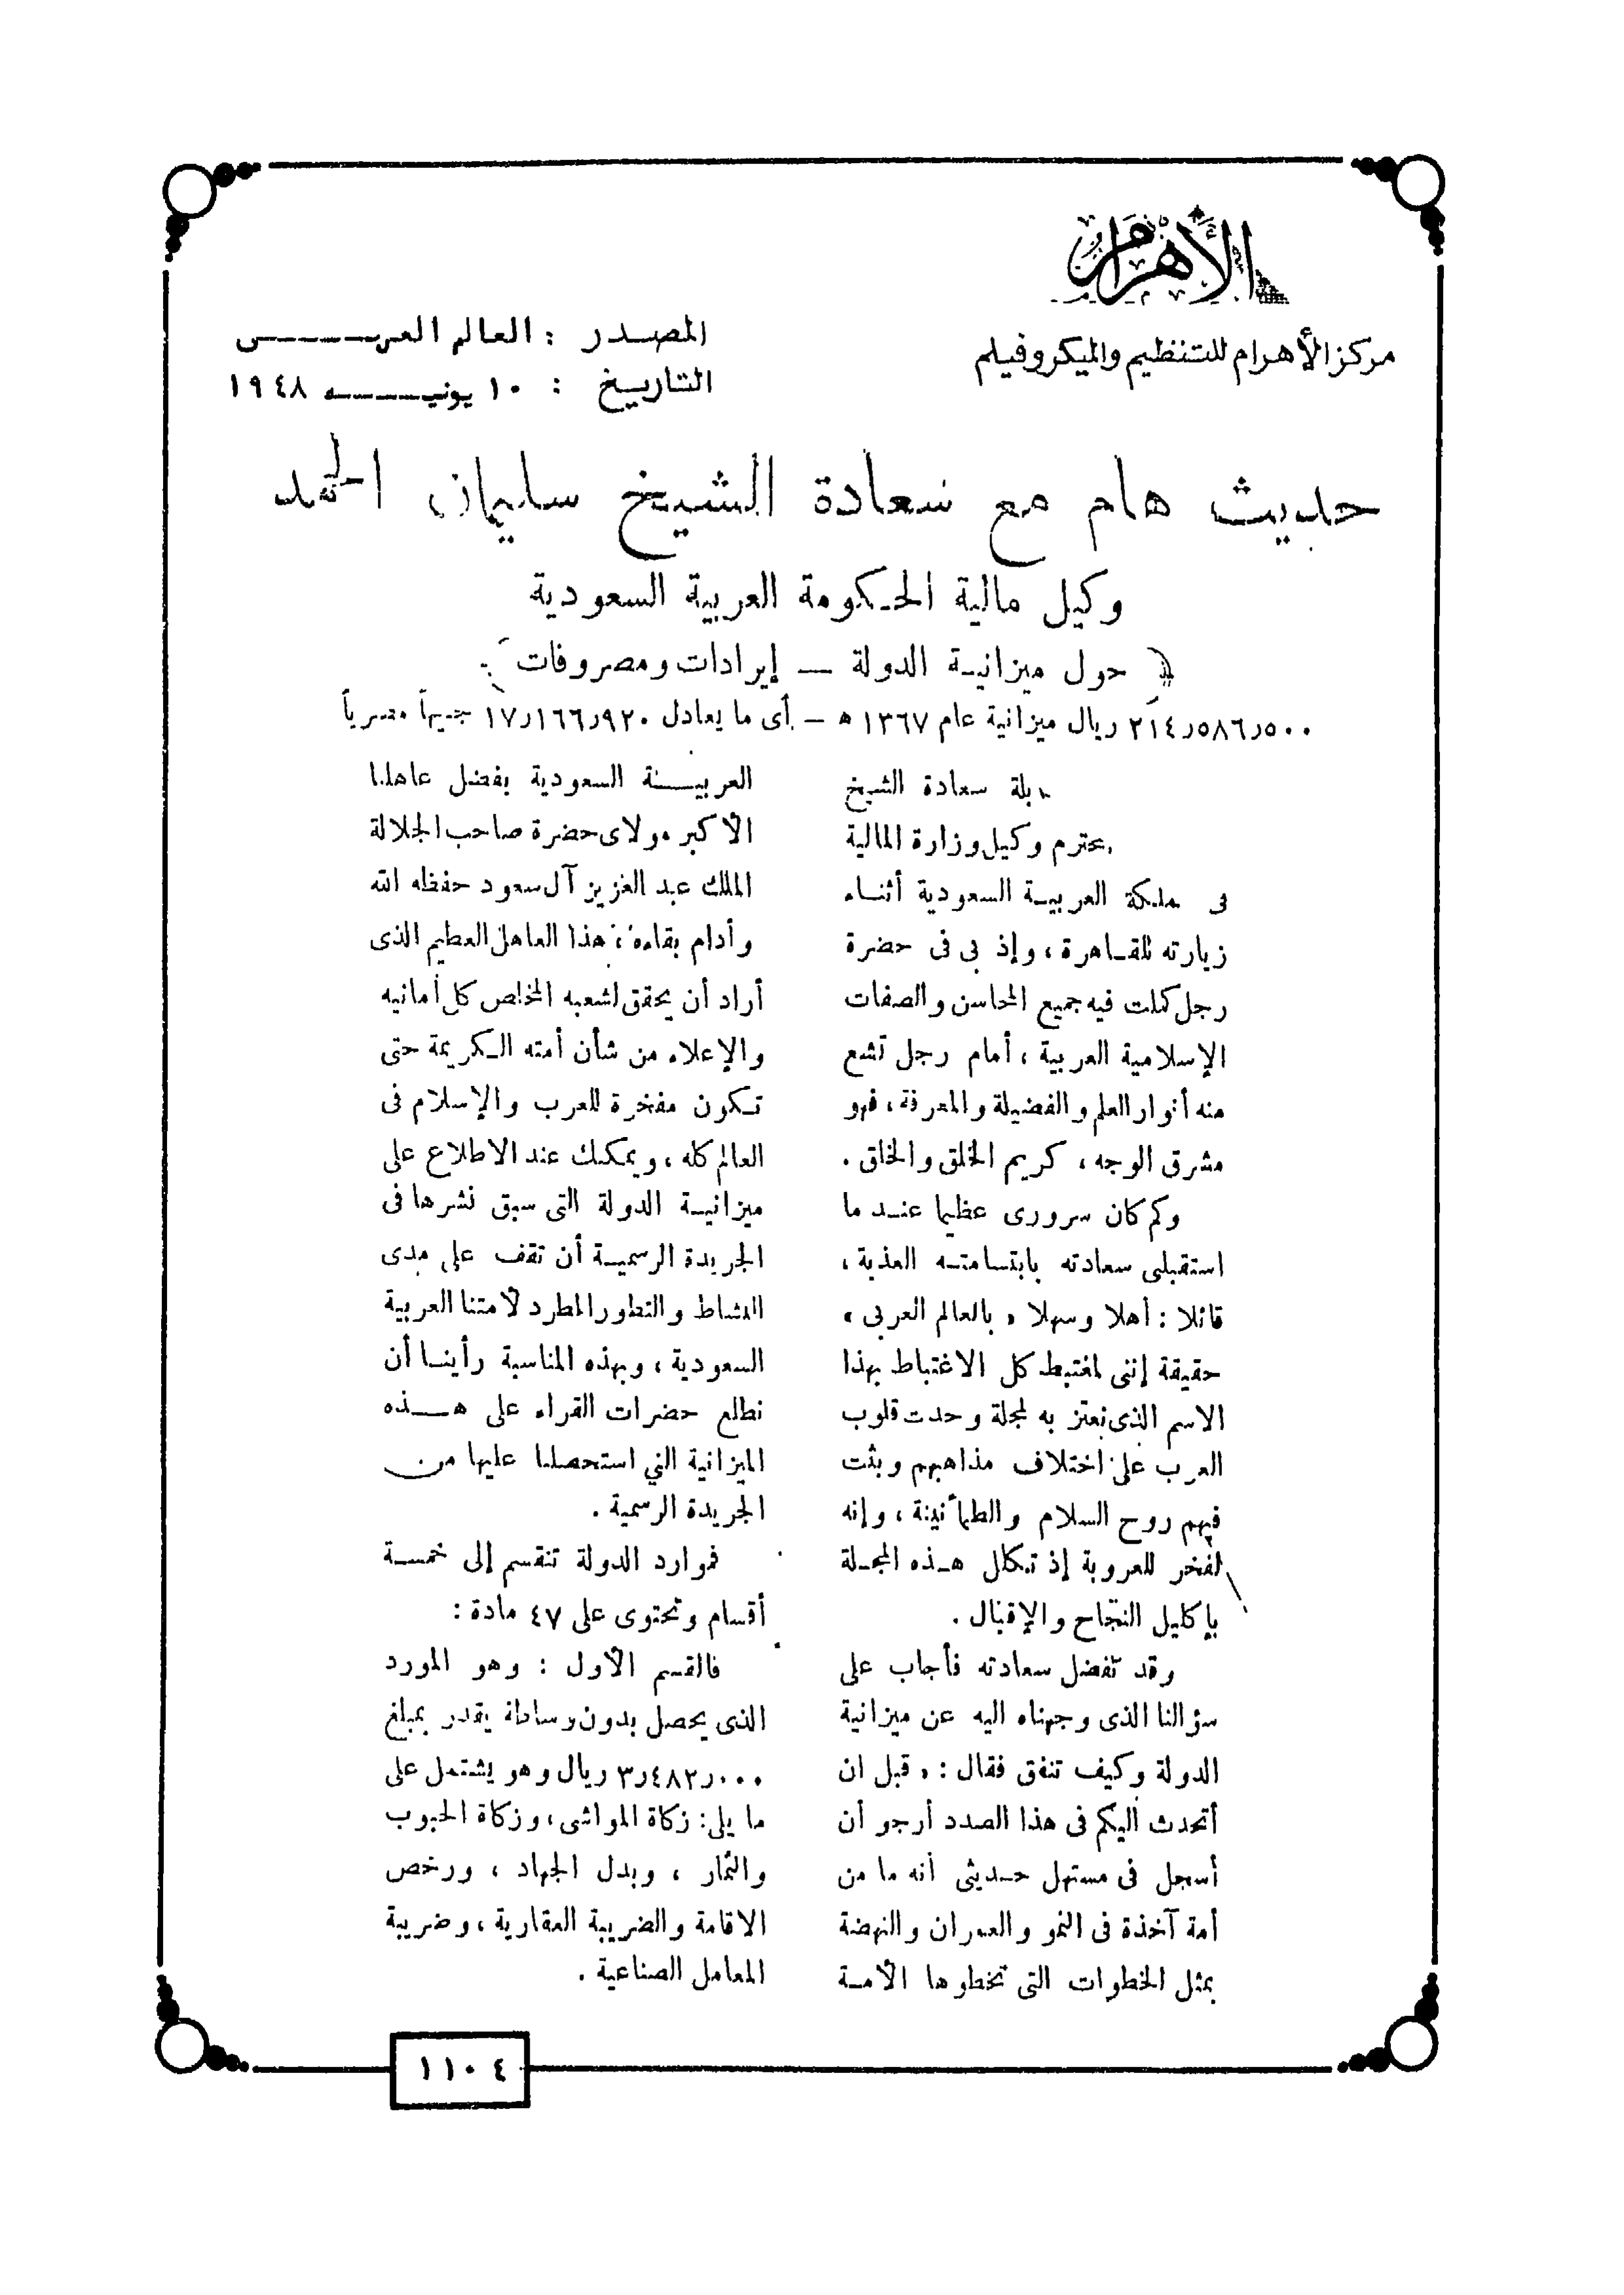 الأهرام
مركز الأهرام للتنظيم والميكروفيلم
المصدر : العالم العربى
التاريخ : ١٠ يونيه ١٩٤٨
حديث هام مع سعادة الشيخ سليمان الحمد
وكيل مالية الحكومة العربية السعودية
حول ميزانية الدولة — إيرادات ومصروفات
٢١٤ر٥٨٦ر٥٠٠ ريال ميزانية عام ١٣٦٧ ه — أى ما يعادل ١٧ر١٦٦ر٩٢٠ جنيهاً مصرياً
سعادة الشيخ
وكيل وزارة المالية
العربية السعودية أثناء
زيارته للقاهرة ، وإذ بى فى حضرة
رجل كملت فيه جميع المحاسن والصفات
الإسلامية العربية ، أمام رجل تشع
منه أنوار العلم والفضيلة والمعرفة ، فهو
مشرق الوجه ، كريم الخلق والخلق .
وكم كان سرورى عظيما عند ما
استقبلى سعادته بابتسامته العذبة ،
قائلا : أهلا وسهلا « بالعالم العربى »
حقيقة إننى لمغتبط كل الاغتباط بهذا
الاسم الذى نعتز به لمجلة وحدت قلوب
العرب على اختلاف مذاهبهم وبثت
فيهم روح السلام والطمأنينة ، وإنه
لفخر للعروبة إذ تكلل هذه المجلة
بإكليل النجاح والإقبال .
وقد تفضل سعادته فأجاب على
سؤالنا الذى وجهناه اليه عن ميزانية
الدولة وكيف تنفق فقال : « قبل ان
أتحدث اليكم فى هذا الصدد أرجو أن
أسجل فى مستهل حديثى أنه ما من
أمة آخذة فى النمو والعمران والنهضة
بمثل الخطوات التى تخطوها الأمة
العربية السعودية بفضل عاهلها
الأكبر مولاى حضرة صاحب الجلالة
الملك عبد العزيز آل سعود حفظه الله
وأدام بقاءه ، هذا العاهل العظيم الذى
أراد أن يحقق لشعبه المخلص كل أمانيه
والإعلاء من شأن أمته الكريمة حتى
تكون مفخرة للعرب والإسلام فى
العالم كله ، ويمكنك عند الاطلاع على
ميزانية الدولة التى سبق نشرها فى
الجريدة الرسمية أن تقف على مدى
النشاط والتطور المطرد لأمتنا العربية
السعودية ، وبهذه المناسبة رأينا أن
نطلع حضرات القراء على هذه
الميزانية التي استحصلنا عليها من
الجريدة الرسمية .
فموارد الدولة تنقسم إلى خمسة
أقسام وتحتوى على ٤٧ مادة :
فالقسم الأول : وهو المورد
الذى يحصل بدون وساطة يقدر بمبلغ
٣ر٤٨٢ر٠٠٠ ريال وهو يشتمل على
ما يلى : زكاة المواشى ، وزكاة الحبوب
والثمار ، وبدل الجهاد ، ورخص
الاقامة والضريبة العقارية ، وضريبة
المعامل الصناعية .
١١٠٤